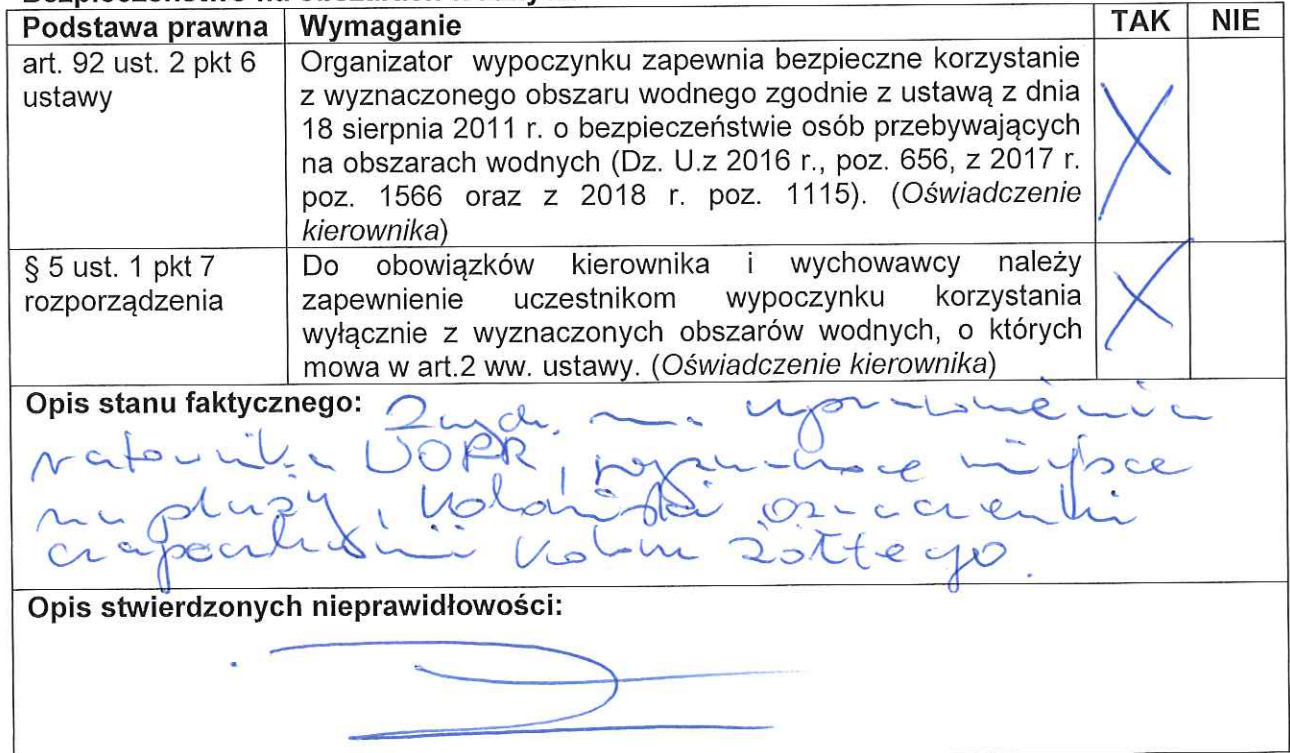 Podstawa prawna | Wymaganie | TAK | NIE
art. 92 ust. 2 pkt 6
ustawy
Organizator wypoczynku zapewnia bezpieczne korzystanie
z wyznaczonego obszaru wodnego zgodnie z ustawą z dnia
18 sierpnia 2011 r. o bezpieczeństwie osób przebywających
na obszarach wodnych (Dz. U.z 2016 r., poz. 656, z 2017 r.
poz. 1566 oraz z 2018 r. poz. 1115). (Oświadczenie
kierownika)
X
§ 5 ust. 1 pkt 7
rozporządzenia
Do obowiązków kierownika i wychowawcy należy
zapewnienie uczestnikom wypoczynku korzystania
wyłącznie z wyznaczonych obszarów wodnych, o których
mowa w art.2 ww. ustawy. (Oświadczenie kierownika)
X
Opis stanu faktycznego: 2 wych. ma uprawnienia
ratownika WOPR, miejsce
na plaży, kolonistki
czapeczkami kolor żółtego.
Opis stwierdzonych nieprawidłowości: